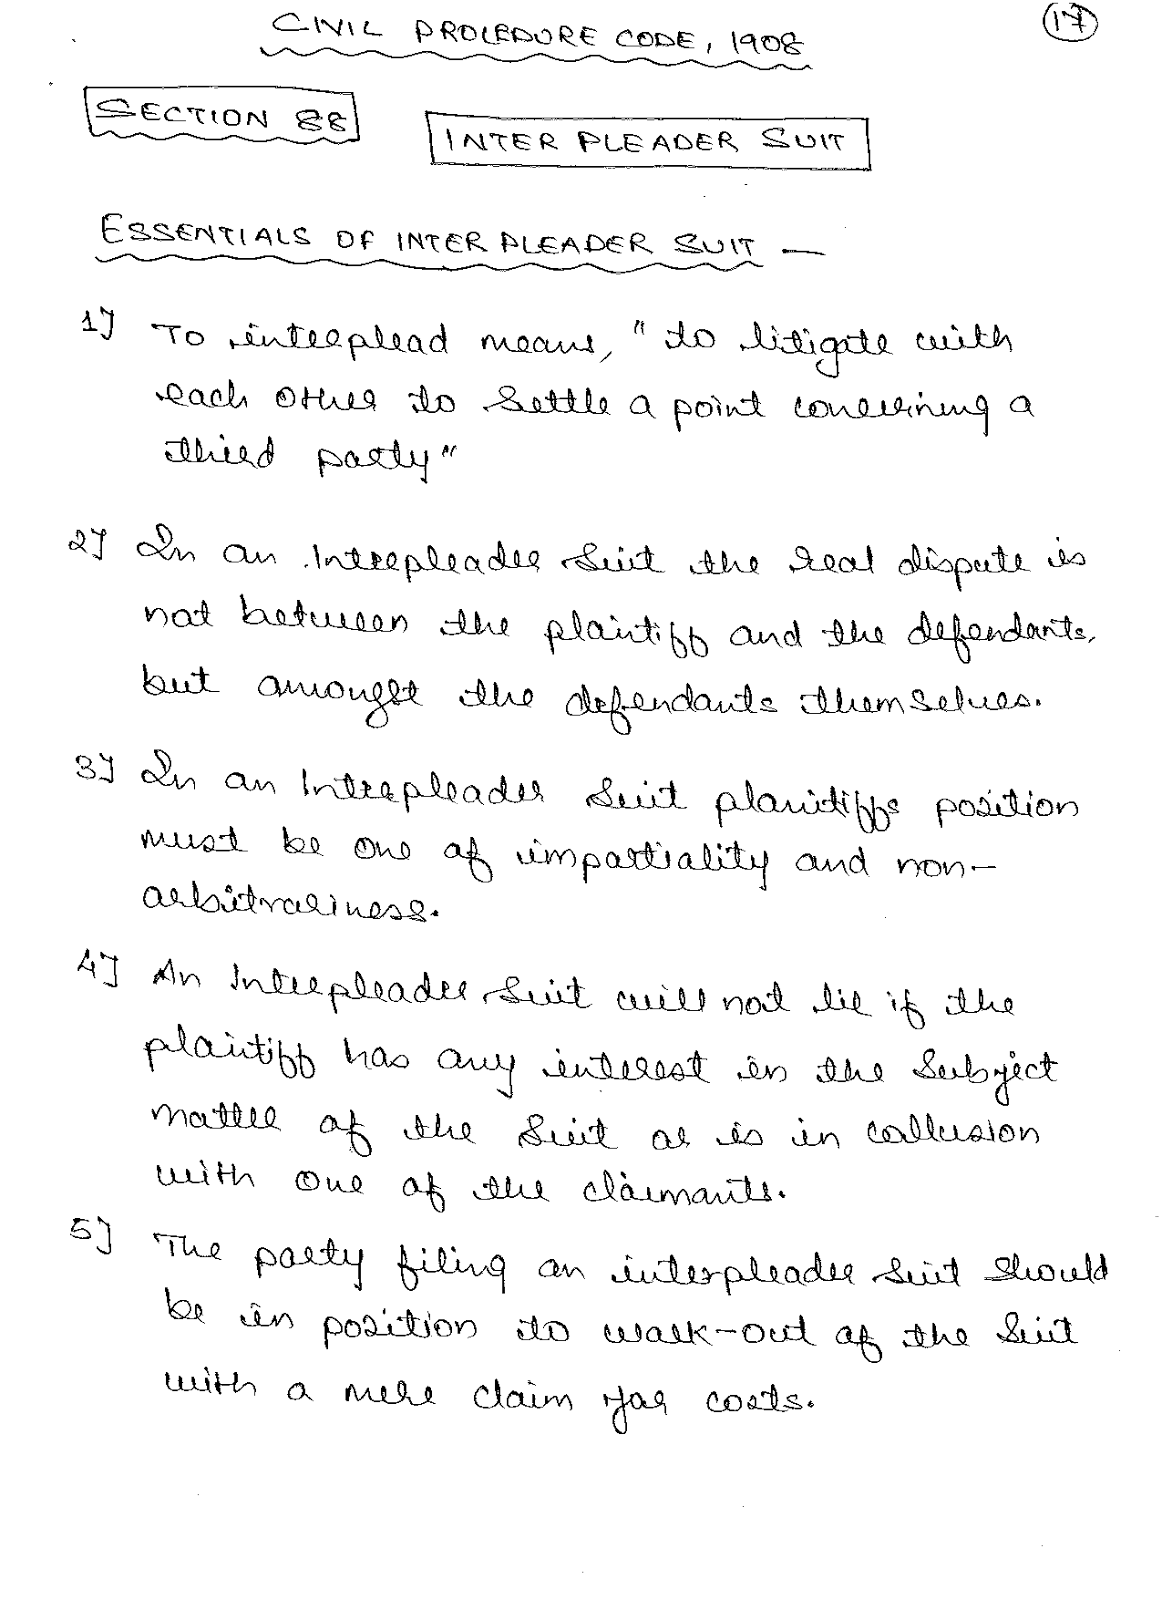 CIVIL PROCEDURE CODE, 1908
17
SECTION 88
INTER PLEADER SUIT
ESSENTIALS OF INTER PLEADER SUIT —
1] To interplead means, "to litigate with
each other to settle a point concerning a
third party"
2] In an Interpleader suit the real dispute is
not between the plaintiff and the defendants,
but amongst the defendants themselves.
3] In an Interpleader suit plaintiffs position
must be one of impartiality and non-
arbitrariness.
4] An Interpleader suit will not lie if the
plaintiff has any interest in the subject
matter of the suit or is in collusion
with one of the claimants.
5] The party filing an interpleader suit should
be in position to walk-out of the suit
with a mere claim for costs.